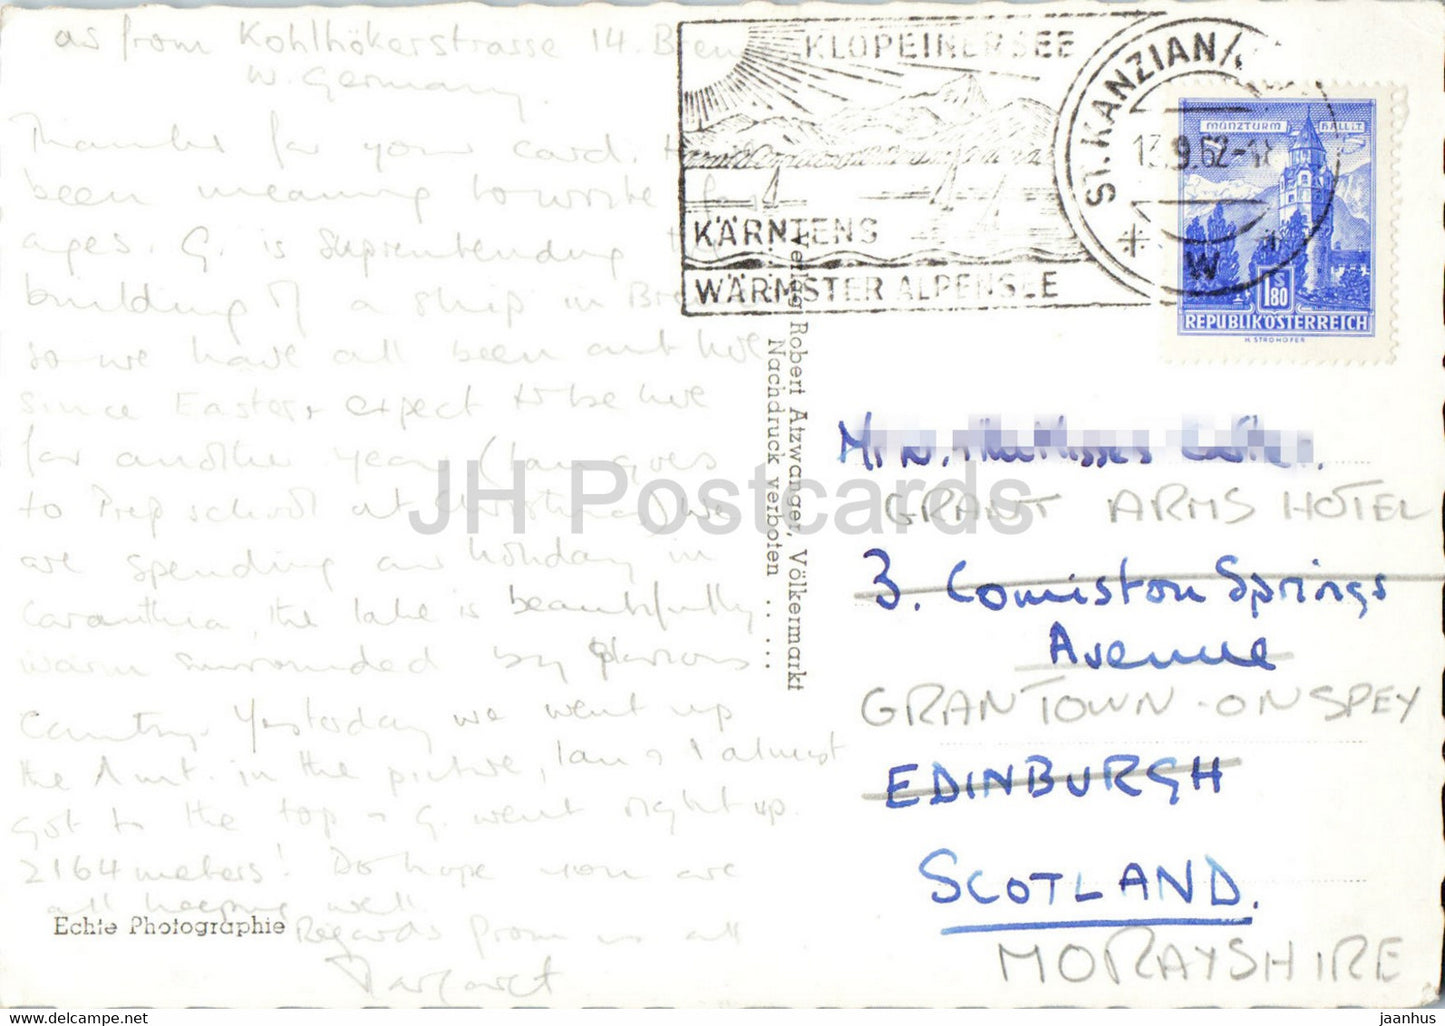 as from Kohlhökerstrasse 14. Brem
W. Germany.
Thanks for your card. H
been meaning to write for
ages. G. is Suprentending th
building of a ship in Brem
so we have all been out here
since Easter, + expect to be here
for another year (Ian goes
to Prep school at Christmas) We
are spending our holiday in
Caranthia, the lake is beautifully
warm surrounded by glorious
Country. Yesterday we went up
the Mt. in the picture, Ian & I almost
got to the top & G. went right up.
2164 meters! Do hope you are
all keeping well.
Regards from us all
Margaret
Echte Photographie
Verlag Robert Atzwanger, Völkermarkt
Nachdruck verboten . . . . .
KLOPEINERSEE
KÄRNTENS
WÄRMSTER ALPENSEE
ST. KANZIAN/
13.9.62-18
W
MÜNZTURM HALL I.T.
S
1.80
REPUBLIK ÖSTERREICH
H. STROHOFER
GRANT ARMS HOTEL
3. Comiston Springs
Avenue
GRANTOWN-ON SPEY
EDINBURGH
SCOTLAND.
MORAYSHIRE
JH Postcards
https://jhpostcards.com
jaanhus